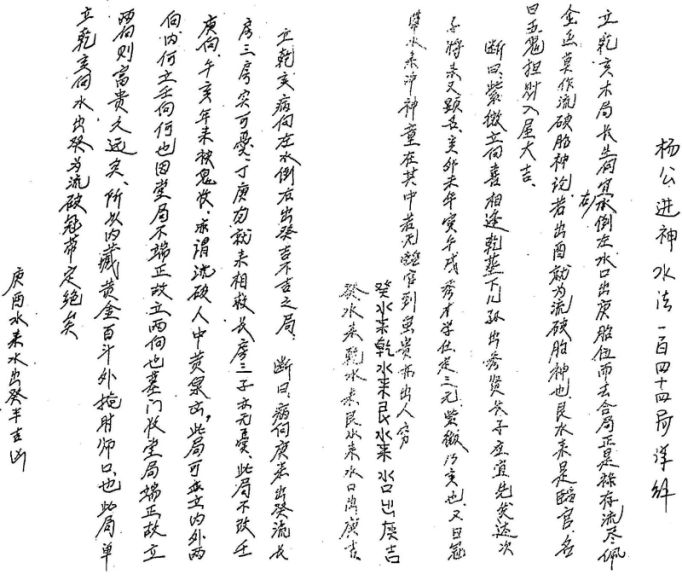 杨公进神水法一百四十四局详解
立乾亥木局长生向宜右水倒左水口出庚胎位而去合局正是禄存流尽佩
金鱼莫作流破胎神论若出酉就为流破胎神也艮水来是临官名
曰五鬼担财入屋大吉
断曰紫微立向喜相逢乾甚下儿孙出秀贤长子应宜先发达次
子将来又显名亥卯未年寅午戌秀才学仕定三元紫微乃亥也又曰冠
带水来冲神童在其中若无临官到虽贵亦出人穷
癸水来乾水来艮水来水口出庚吉
癸水来乾水来艮水来水口出庚吉
立乾亥病向左水倒右出癸吉不吉之局 断曰病向庚来出癸流长
房三房实可忧丁庚向就来相救长房三子亦无忧此局不改壬
庚向午亥年来被鬼收亦谓流破人中黄泉出此局可在立内外两
向内何立壬向何也因堂局不端正故立两向也墓门收堂局端正故立
两向则富贵久远矣所以内藏黄金百斗外掩射师口也此局单
立乾亥向水出癸为流破冠带定绝矣
庚酉水来水出癸半吉凶